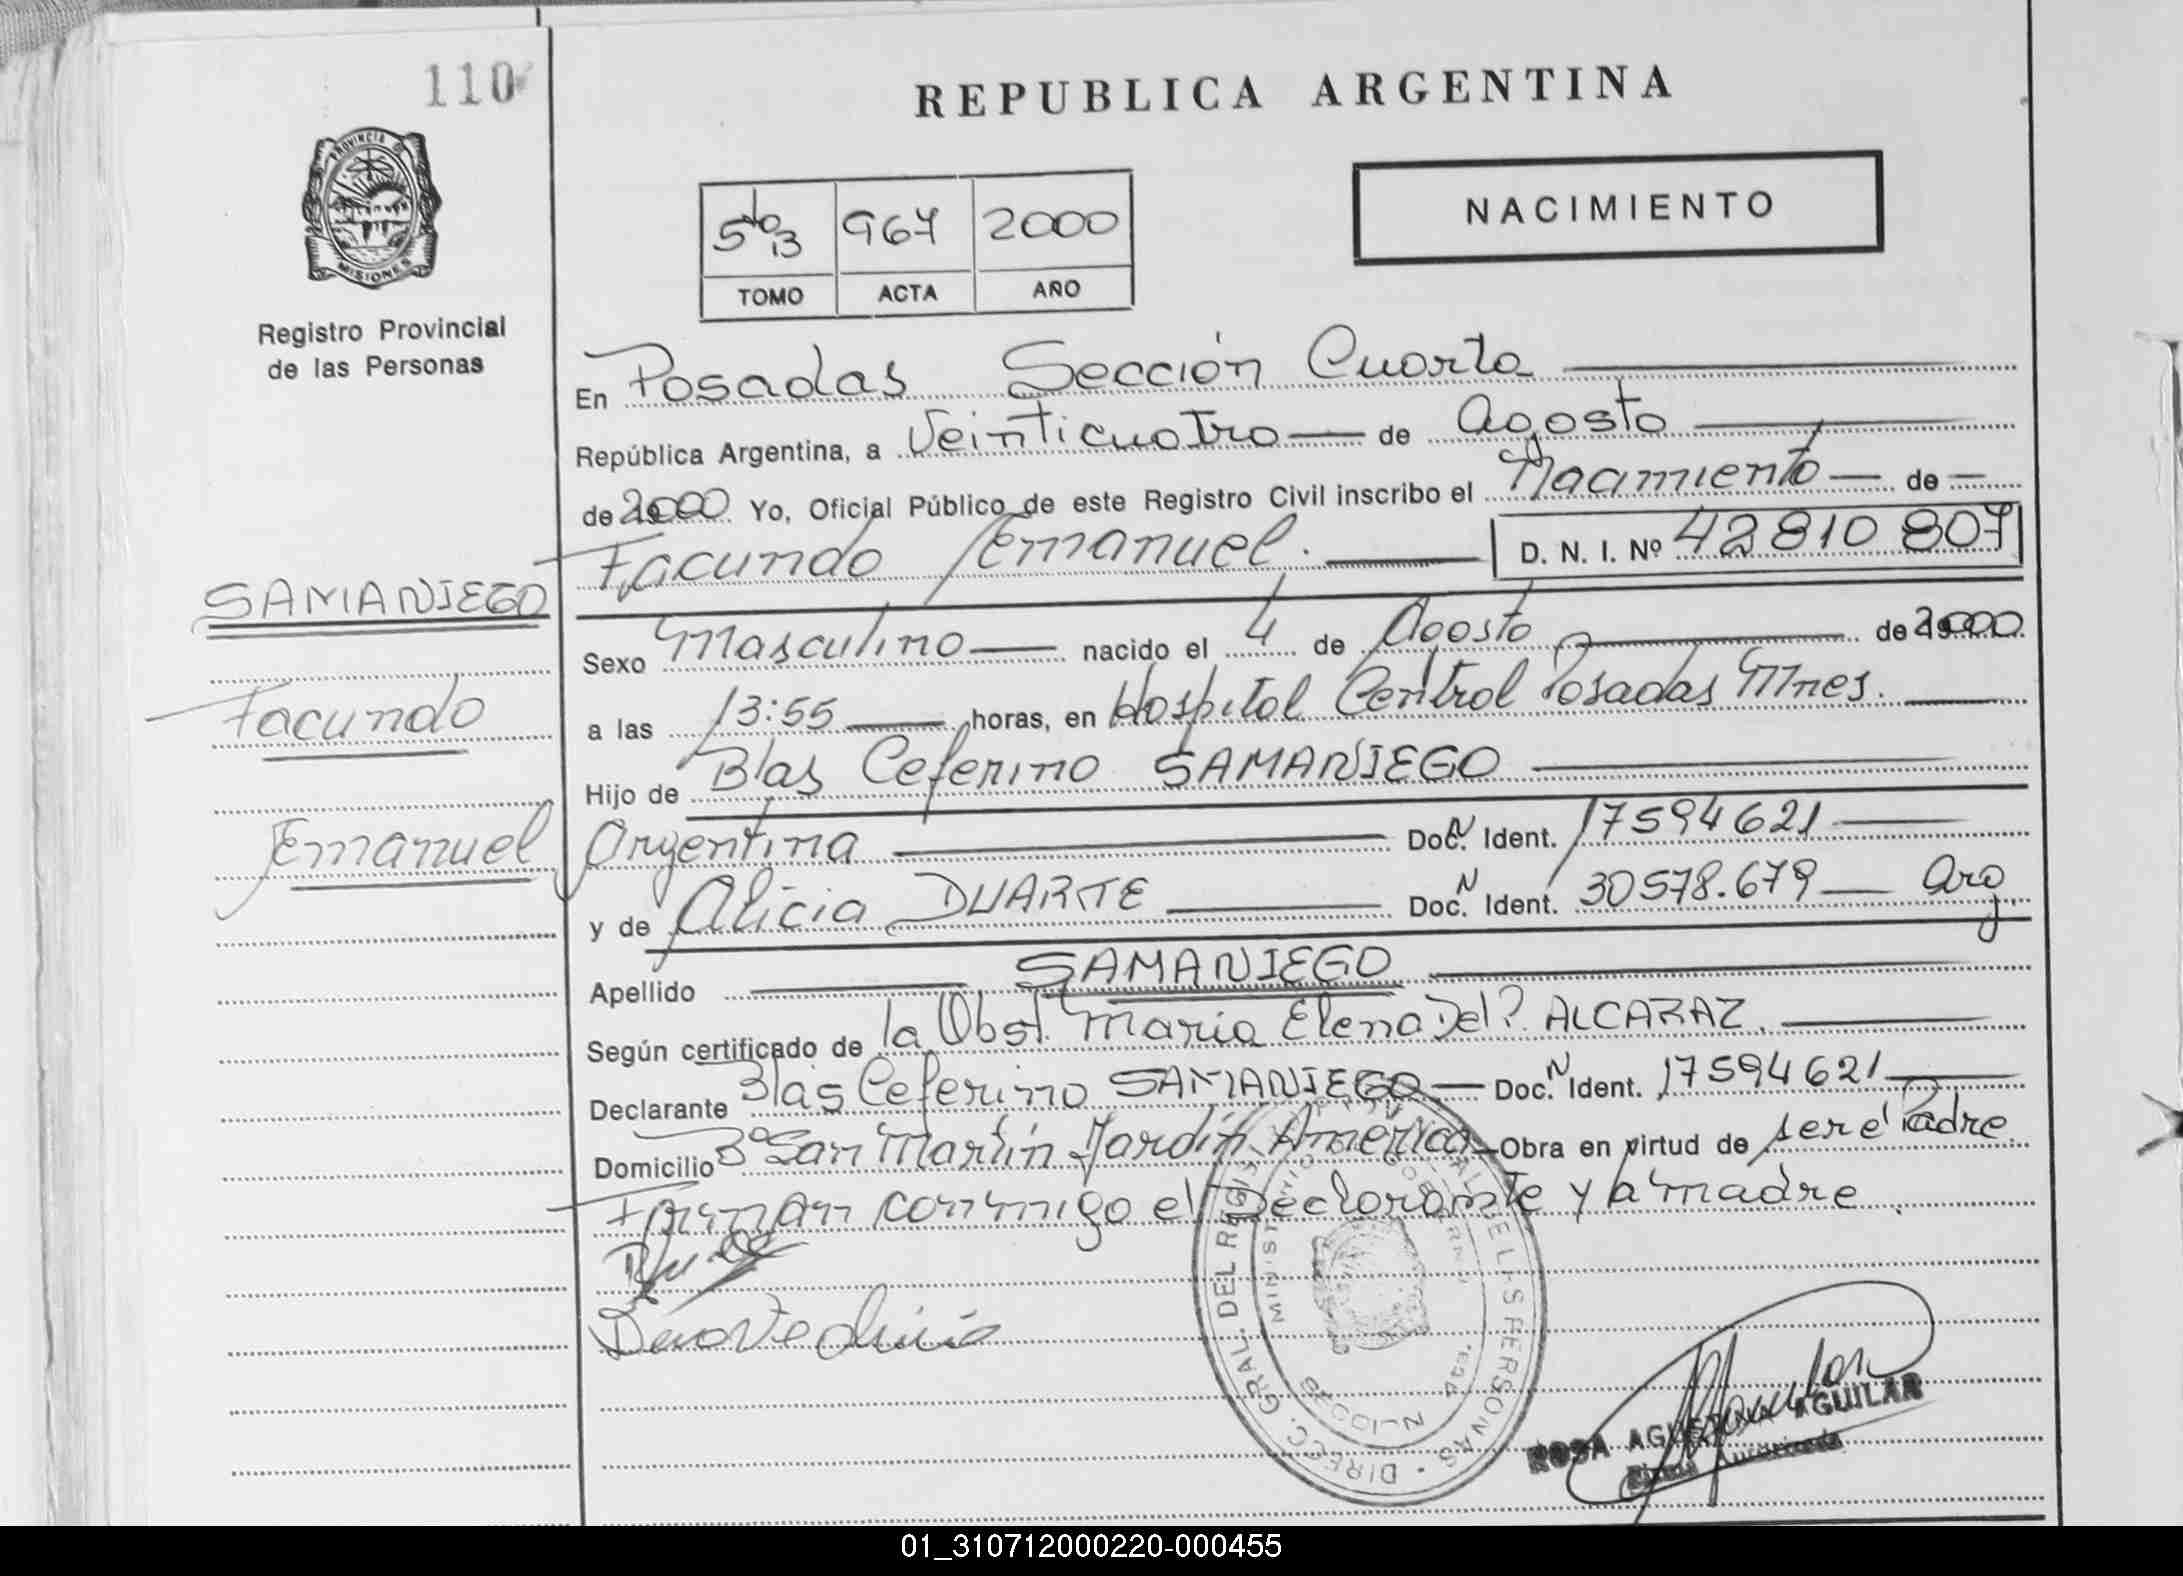 110
REPUBLICA ARGENTINA
PROVINCIA DE
MISIONES
Registro Provincial
de las Personas
5to 13 967 2000
TOMO ACTA AÑO
NACIMIENTO
En Posadas Sección Cuarta
República Argentina, a Veinticuatro de Agosto
de 2000 Yo, Oficial Público de este Registro Civil inscribo el Nacimiento de
Facundo Emanuel. D. N. I. Nº 42810807
SAMANIEGO
Facundo
Emanuel
Sexo Masculino nacido el 4 de Agosto de 2000
a las 13:55 horas, en Hospital Central Posadas Mnes.
Hijo de Blas Ceferino SAMANIEGO
Argentina Doc. N Ident. 17594621
y de Alicia DUARTE Doc. N Ident. 30578.679 Arg.
Apellido SAMANIEGO
Según certificado de la Obst. Maria Elena Del P. ALCARAZ.
Declarante Blas Ceferino SAMANIEGO Doc. N Ident. 17594621
Domicilio Bº San Martin Jardín América Obra en virtud de ser el Padre.
Firman conmigo el Declarante y la madre.
DIREC. GRAL. DEL REGIS PROVINCIAL DE LAS PERSONAS
MINISTERIO DE GOBIERNO
ROSA AGUSTINA AGUILAR
Firma Autorizada
01_310712000220-000455